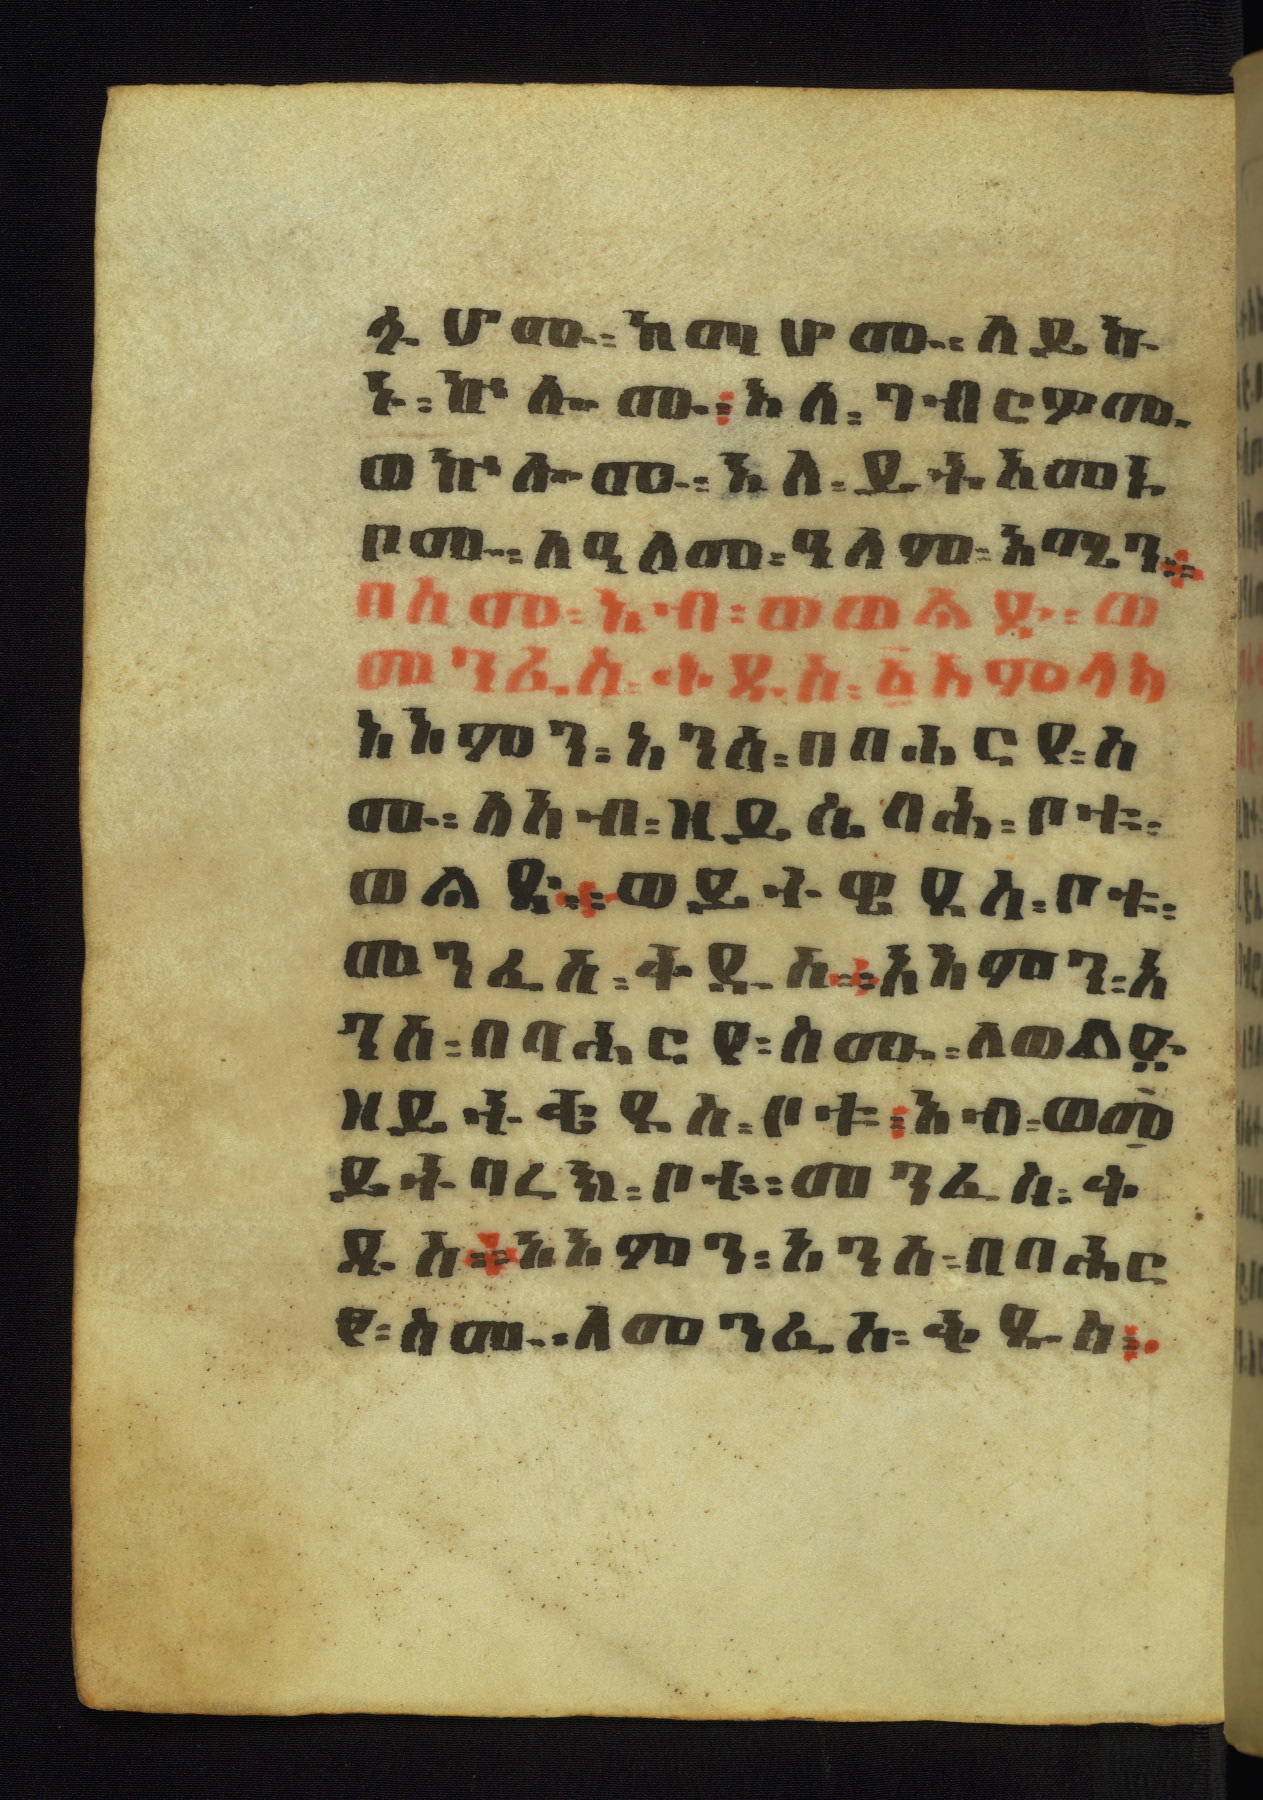 ኋሆሙ፡ ከማሆሙ፡ ለይኩ
ኑ፡ ኵሎሙ፡ እለ፡ ግብርዎሙ
ወኵሎሙ፡ እለ፡ ይትአመኑ
ቦሙ፡ ለዒለመ፡ ዓለም፡ አሜን፨
በስመ፡ አብ፡ ወወልድ፡ ወ
መንፈስ፡ ቅዱስ፡ ፩አምላክ
አአምን፡ አንሰ፡ በባሕርየ፡ ስ
ሙ፡ ለአብ፡ ዘይሴባሕ፡ ቦቱ፡
ወልድ፨ ወይትዌደስ፡ ቦቱ፡
መንፈስ፡ ቅዱስ፨ አአምን፡ አ
ንሰ፡ በባሕርየ፡ ስሙ፡ ለወልድ
ዘይትቄደስ፡ ቦቱ፡ አብ፡ ወመ
ይትባረክ፡ ቦቱ፡ መንፈስ፡ ቅ
ዱስ፨ አአምን፡ አንሰ፡ በባሕር
የ፡ ስሙ፡ ለመንፈስ፡ ቅዱስ፡